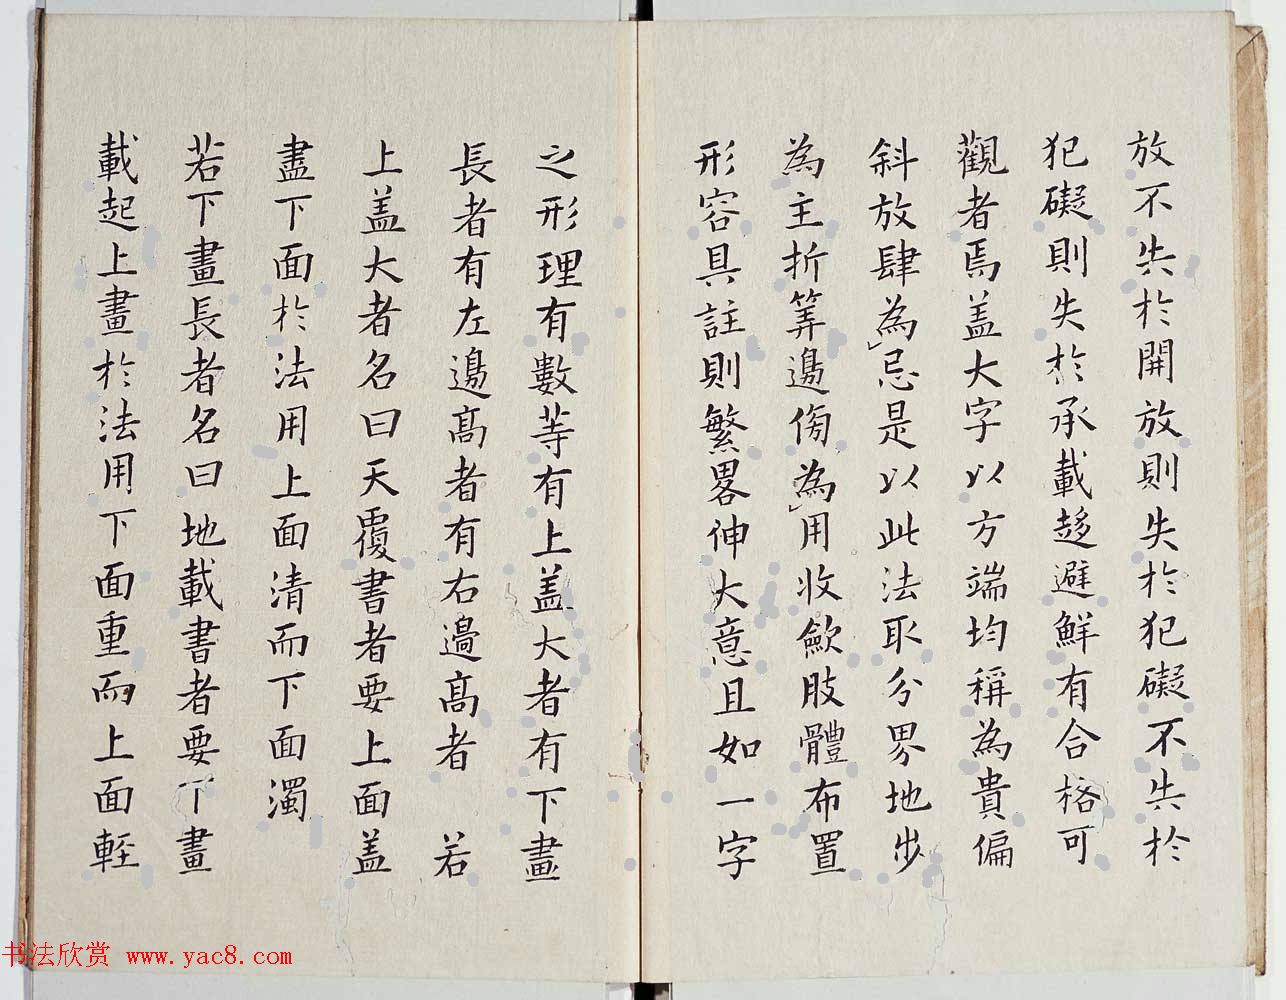 放不失於開放則失於犯礙不失於
犯礙則失於承載趍避鮮有合格可
觀者焉盖大字以方端均稱為貴偏
斜放肆為忌是以此法取分界地步
為主折筭邊傍為用收斂肢體布置
形容具註則繁畧伸大意且如一字
之形理有數等有上盖大者有下畫
長者有左邊高者有右邊高者 若
上盖大者名曰天覆書者要上面盖
盡下面於法用上面清而下面濁
若下畫長者名曰地載書者要下畫
載起上畫於法用下面重而上面輕
书法欣赏 www.yac8.com